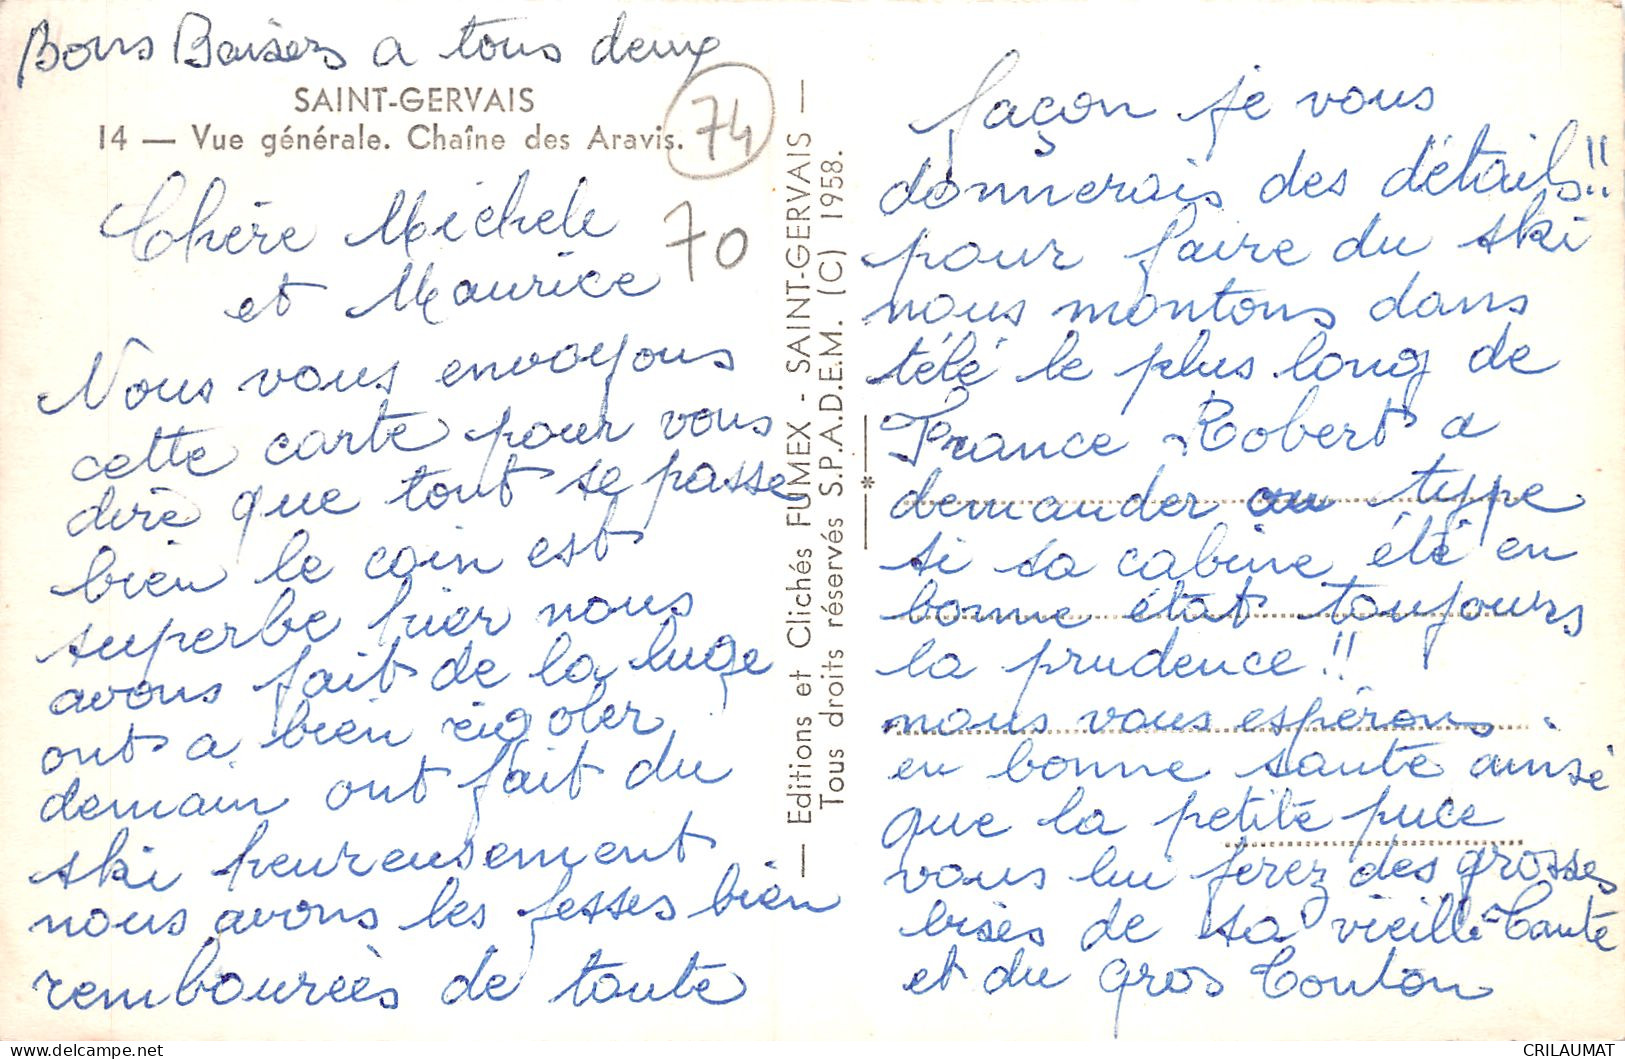 Bons Baisers a tous deux
SAINT-GERVAIS
14 — Vue générale. Chaîne des Aravis.
74
70
Chère Michele
et Maurice
Nous vous envoyons
cette carte pour vous
dire que tout se passe
bien le coin est
superbe hier nous
avons fait de la luge
ont a bien rigoler
demain ont fait du
ski heureusement
nous avons les fesses bien
rembourrées de toute
— Editions et Clichés FUMEX - SAINT-GERVAIS —
Tous droits réservés S.P.A.D.E.M. (C) 1958.
*
façon je vous
donnerais des détails!!
pour faire du ski
nous montons dans
télé le plus long de
France Robert a
demander au type
si sa cabine été en
bonne état toujours
la prudence!!
nous vous espérons
en bonne santé ainsi
que la petite puce
vous lui ferez des grosses
bises de sa vieille Tante
et du gros Tonton
delcampe.net
CRILAUMAT